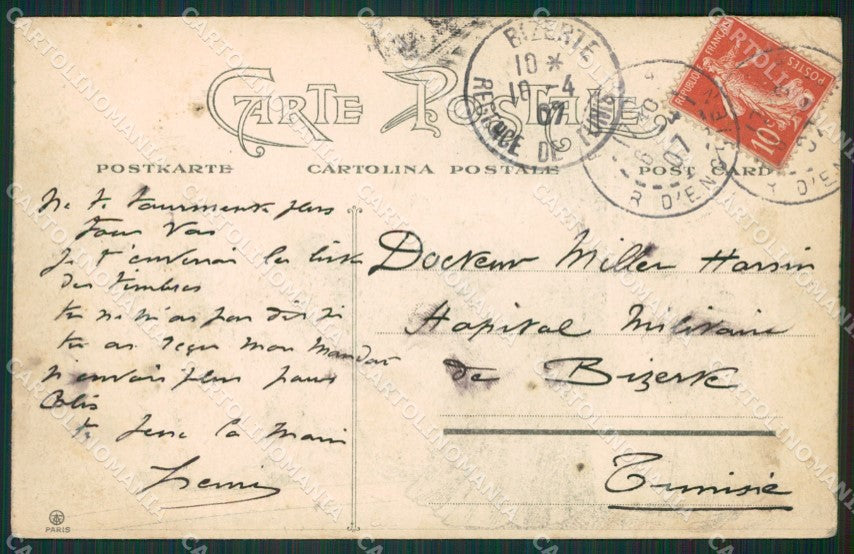 CARTE POSTALE
POSTKARTE CARTOLINA POSTALE POST CARD
BIZERTE
10 *
10 -4
07
REGENCE DE TUNIS
REPUBLIQUE FRANÇAISE
POSTES
10
07
R. D'ENGHIEN
Ne te tourmente plus
tout va
Je t'enverrai la liste
des timbres
tu ne m'as pas dit si
tu as reçu mon mandat
n'envoie plus
Colis
te serre la main
Henri
Docteur Miller
Hopital Militaire
de Bizerte
Tunisie
PARIS
CARTOLINOMANIA